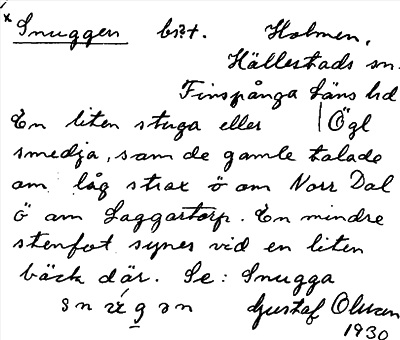 Snuggen bs?t. Holmen,
Hällestads sn.
Finspånga läns hd
En liten stuga eller Ögl
smedja, som de gamle talade
om låg strax ö om Norr Dal
ö om Laggartorp. En mindre
stenfot synes vid en liten
bäck där. Se: Snugga
Gustaf Olsson
1930